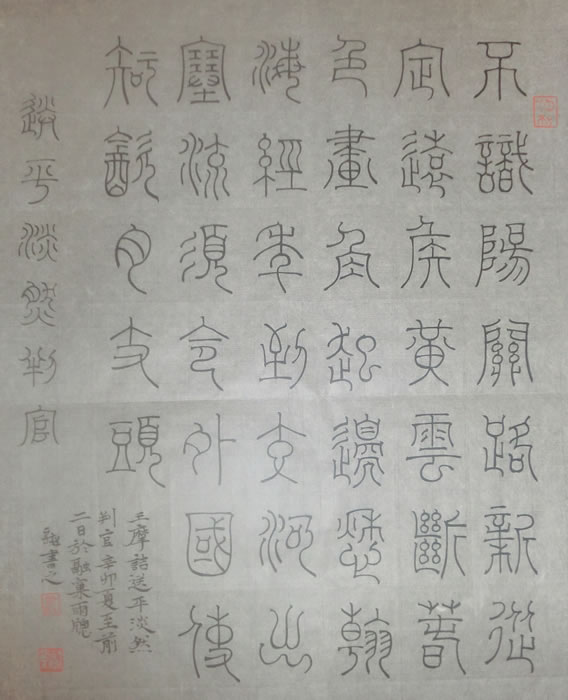 不識陽關路新從
定遠侯黃雲斷春
色畫角起邊愁翰
海經年到交河出
塞流須令外國使
知飲月支頭
送平淡然判官
王摩詰送平淡然
判官辛卯夏至前
二日於融窠雨牕
書之